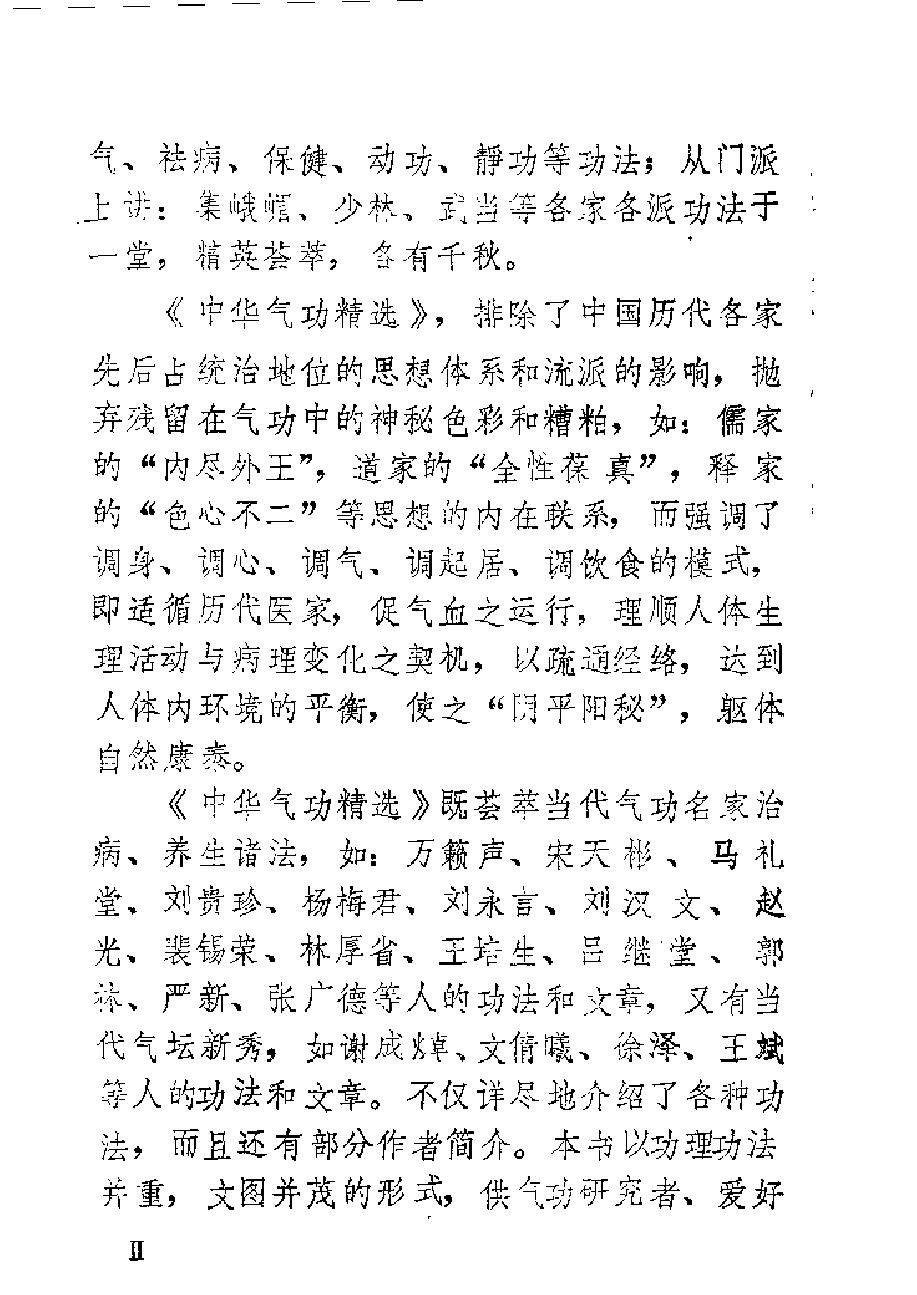 气、祛病、保健、动功、静功等功法；从门派
上讲：集峨嵋、少林、武当等各家各派功法于
一堂，精英荟萃，各有千秋。
《中华气功精选》，排除了中国历代各家
先后占统治地位的思想体系和流派的影响，抛
弃残留在气功中的神秘色彩和糟粕，如：儒家
的“内尽外王”，道家的“全性葆真”，释家
的“色心不二”等思想的内在联系，而强调了
调身、调心、调气、调起居、调饮食的模式，
即适循历代医家，促气血之运行，理顺人体生
理活动与病理变化之契机，以疏通经络，达到
人体内环境的平衡，使之“阴平阳秘”，躯体
自然康泰。
《中华气功精选》既荟萃当代气功名家治
病、养生诸法，如：万籁声、宋天彬、马礼
堂、刘贵珍、杨梅君、刘永言、刘汉文、赵
光、裴锡荣、林厚省、王培生、吕继堂、郭
林、严新、张广德等人的功法和文章，又有当
代气坛新秀，如谢成焯、文倩曦、徐泽、王斌
等人的功法和文章。不仅详尽地介绍了各种功
法，而且还有部分作者简介。本书以功理功法
并重，文图并茂的形式，供气功研究者、爱好
II